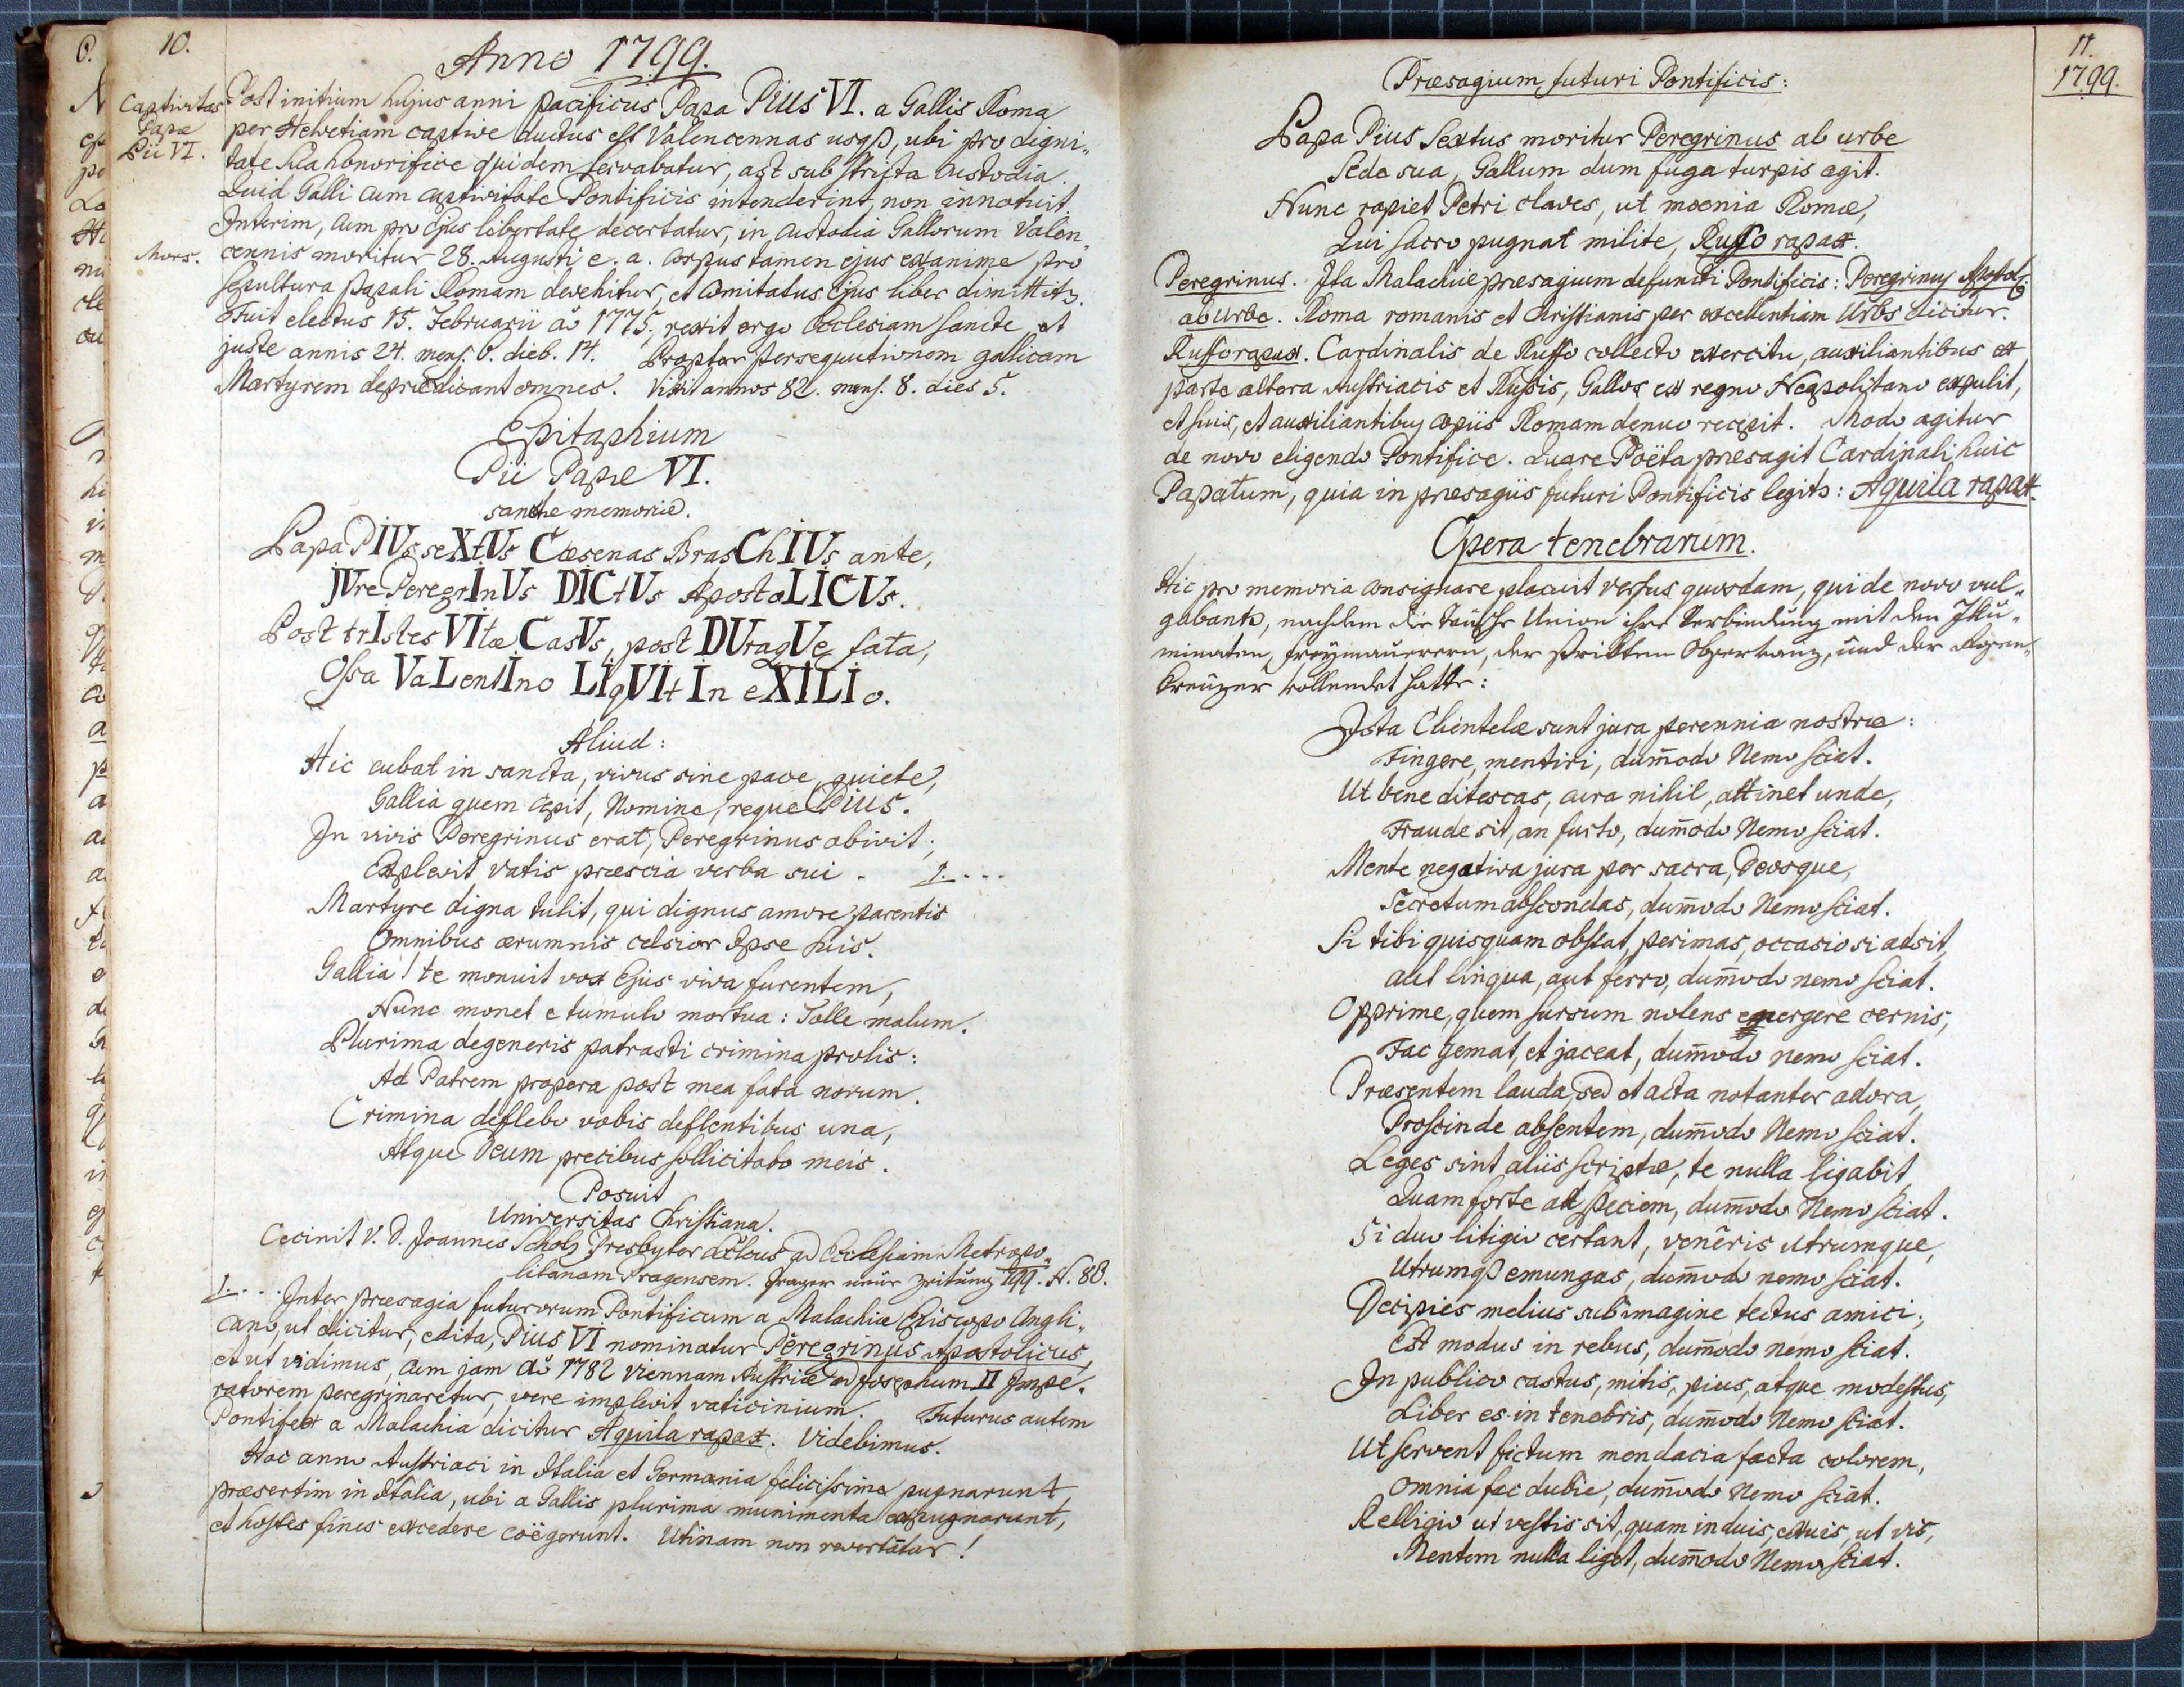 10.
Anno 1799.
Captivitas
Papæ
Pii VI.
Post initium hujus anni pacificus Papa Pius VI. a Gallis Roma
per Helvetiam captive ductus est Valencennas usqȝ, ubi pro digni„
tate sua honorifice quidem servabatur, ast sub stricta custodia.
Quid Galli cum captivitate Pontificis intenderint, non innotuit.
Interim, cum pro ejus libertate decertatur, in custodia Gallorum Valen„
Mors.
cennis moritur 28. Augusti e. a. Corpus tamen ejus exanime pro
sepultura papali Romam devehitur, et Comitatus Ejus liber dimittitr.
Fuit electus 15. Februarii aõ 1775. rexit ergo Ecclesiam sancte et
juste annis 24. mens. 6. dieb. 14. Propter persequutionem gallicam
Martyrem deprædicant omnes. Vixit annos 82. mens. 8. dies 5.
Epitaphium
Pii Papæ VI.
sanctæ memoriæ.
Papa PIUs seXtUs Cæsenas BrasChIUs ante,
jUre PeregrInUs DICtUs ApostoLICUs.
Post trIstes VItæ CasUs, post DUraqUe fata,
Ossa VaLentIno LIqVIt In eXILIo.
Aliud:
Hic cubat in sancta, vivus sine pace, quiete,
Gallia quem cepit, Nomine, reque Pius.
In vivis Peregrinus erat, Peregrinus obivit;
Explevit vatis præscia verba sui. 1. . . .
Martyre digna tulit, qui dignus amore parentis
Omnibus ærumnis celsior Ipse suis.
Gallia! te monuit vox Ejus viva furentem,
Nunc monet e tumulo mortua: Tolle malum.
Plurima degeneris patrasti crimina prolis:
Ad Patrem propera post mea fata novum.
Crimina deflebo vobis deflentibus una,
Atque Deum precibus sollicitabo meis.
Posuit
Universitas Christiana.
Cecinit V. D. Joannes Scholz Presbyter ad Ecclesiam Metropo„
litanam Pragensem. Prager neüe Zeitung 799. N. 88.
1. . . . Inter præsagia futurorum Pontificum a Malachia Episcopo Angli„
cano, ut dicitur, edita, Pius VI nominatur Peregrinus Apostolicus,
et ut vidimus, cum jam aõ 1782 Viennam Austriæ ad Josephum II Impe„
ratorem peregrinaretur, vere implevit vaticinium. Futurus autem
Pontifex a Malachia dicitur Aquila rapax. Videbimus.
Hoc anno Austriaci in Italia et Germania felicissime pugnarunt
præsertim in Italia, ubi a Gallis plurima munimenta expugnarunt,
et hostes fines excedere coëgerunt. Utinam non revertatur!
11.
1799.
Præsagium futuri Pontificis:
Papa Pius Sextus moritur Peregrinus ab urbe
Sede sua, Gallum dum fuga turpis agit.
Nunc rapiet Petri claves, ut moenia Romæ,
Qui sacro pugnat milite, Ruffo rapax.
Peregrinus. Ita Malachiæ præsagium defuncti Pontificis: Peregrinus Apostol:
ab urbe. Roma romanis et Christianis per excellentiam Urbs dicitur.
Ruffo rapax. Cardinalis de Ruffo collecto exercitu, auxiliantibus ex
parte altera Austriacis et Russis, Gallos ex regno Neapolitano expulit,
et suis, et auxiliantibus copiis Romam denuo recepit. Modo agitur
de novo eligendo Pontifice. Quare Poëta præsagit Cardinali huic
Papatum, quia in præsagiis futuri Pontificis legitr: Aquila rapax.
Opera tenebrarum.
Hic pro memoria consignare placuit versus quosdam, qui de novo vul„
gabantr, nachdem die teütsche Union ihre Verbindung mit den Illu„
minaten, Freÿmaurern, der strikten Observanz, und der Rosen„
kreüzer vollendet hatte:
Ista Clientelæ sunt jura perennia nostræ:
Fingere, mentiri, dum̄odo Nemo sciat.
Ut bene ditescas, cura nihil, attinet unde,
Fraude sit, an furto, dum̄odo Nemo sciat.
Mente negativa jura per sacra, Deosque,
Secretum abscondas, dum̄odo Nemo sciat.
Si tibi quisquam obstat, perimas, occasio si adsit,
aut lingua, aut ferro, dum̄odo nemo sciat.
Opprime, quem sursum nolens emergere cernis,
Fac gemat, et jaceat, dum̄odo nemo sciat.
Præsentem lauda, sed et acta notanter adora,
Proscinde absentem, dum̄odo Nemo sciat.
Leges sint aliis scriptæ, te nulla ligabit,
Quam forte ad speciem, dum̄odo Nemo sciat.
Si duo litigio certant, veneris utrumque,
Utrumqȝ emungas, dum̄odo nemo sciat.
Decipies melius sub imagine tectus amici;
Est modus in rebus, dum̄odo nemo sciat.
In publico castus, mitis, pius, atque modestus,
Liber es in tenebris, dum̄odo Nemo sciat.
Ut servent fictum mendacia facta colorem,
Omnia fac dubie, dum̄odo Nemo sciat.
Relligio ut vestis sit, quam induis, exuis, ut vis,
Mentem nulla liget, dum̄odo Nemo sciat.